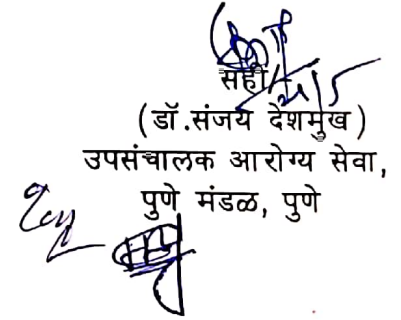 सही/-
(डॉ.संजय देशमुख)
उपसंचालक आरोग्य सेवा,
पुणे मंडळ, पुणे